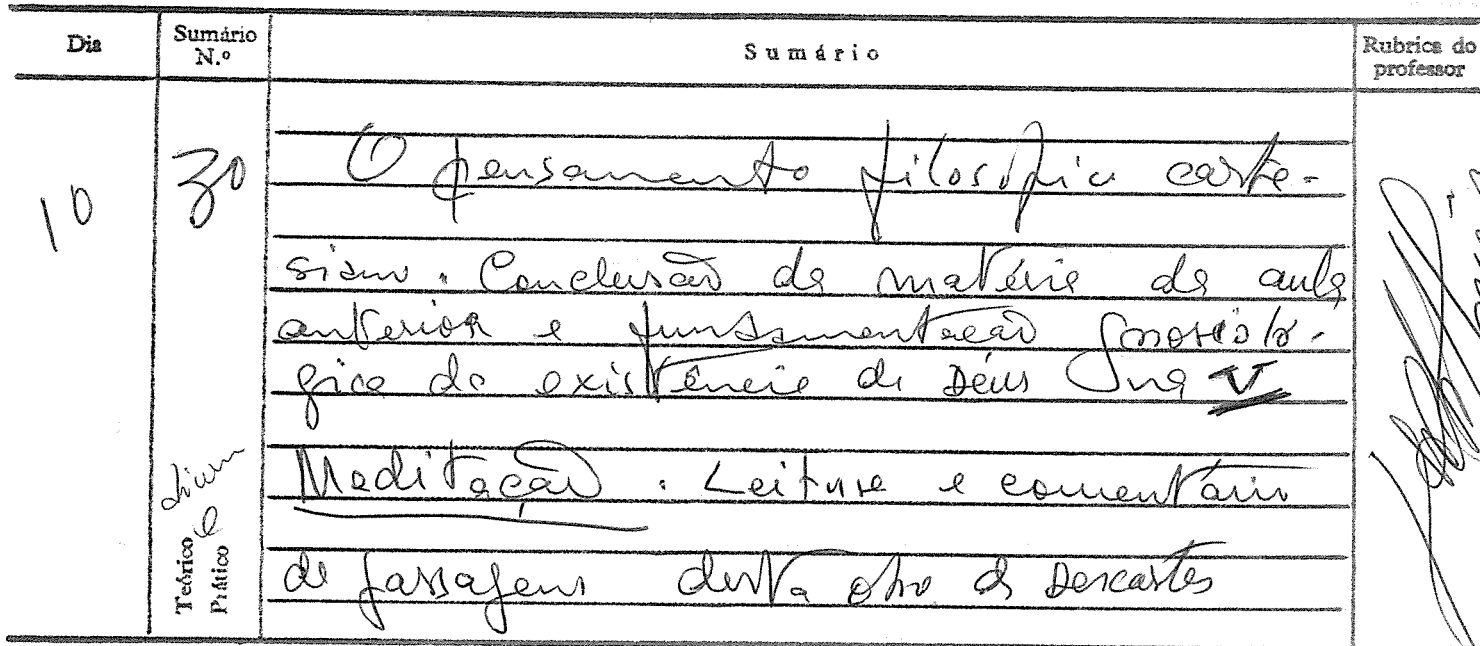 Dia
Sumário
N.º
Sumário
Rubrica do
professor
10
30
O pensamento filosófico carte-
siano. Conclusão da matéria da aula
anterior e fundamentação gnosioló-
gica da existência de Deus na V
Meditação. Leitura e comentário
de passagens desta obra de Descartes
Teórico
e
Prático